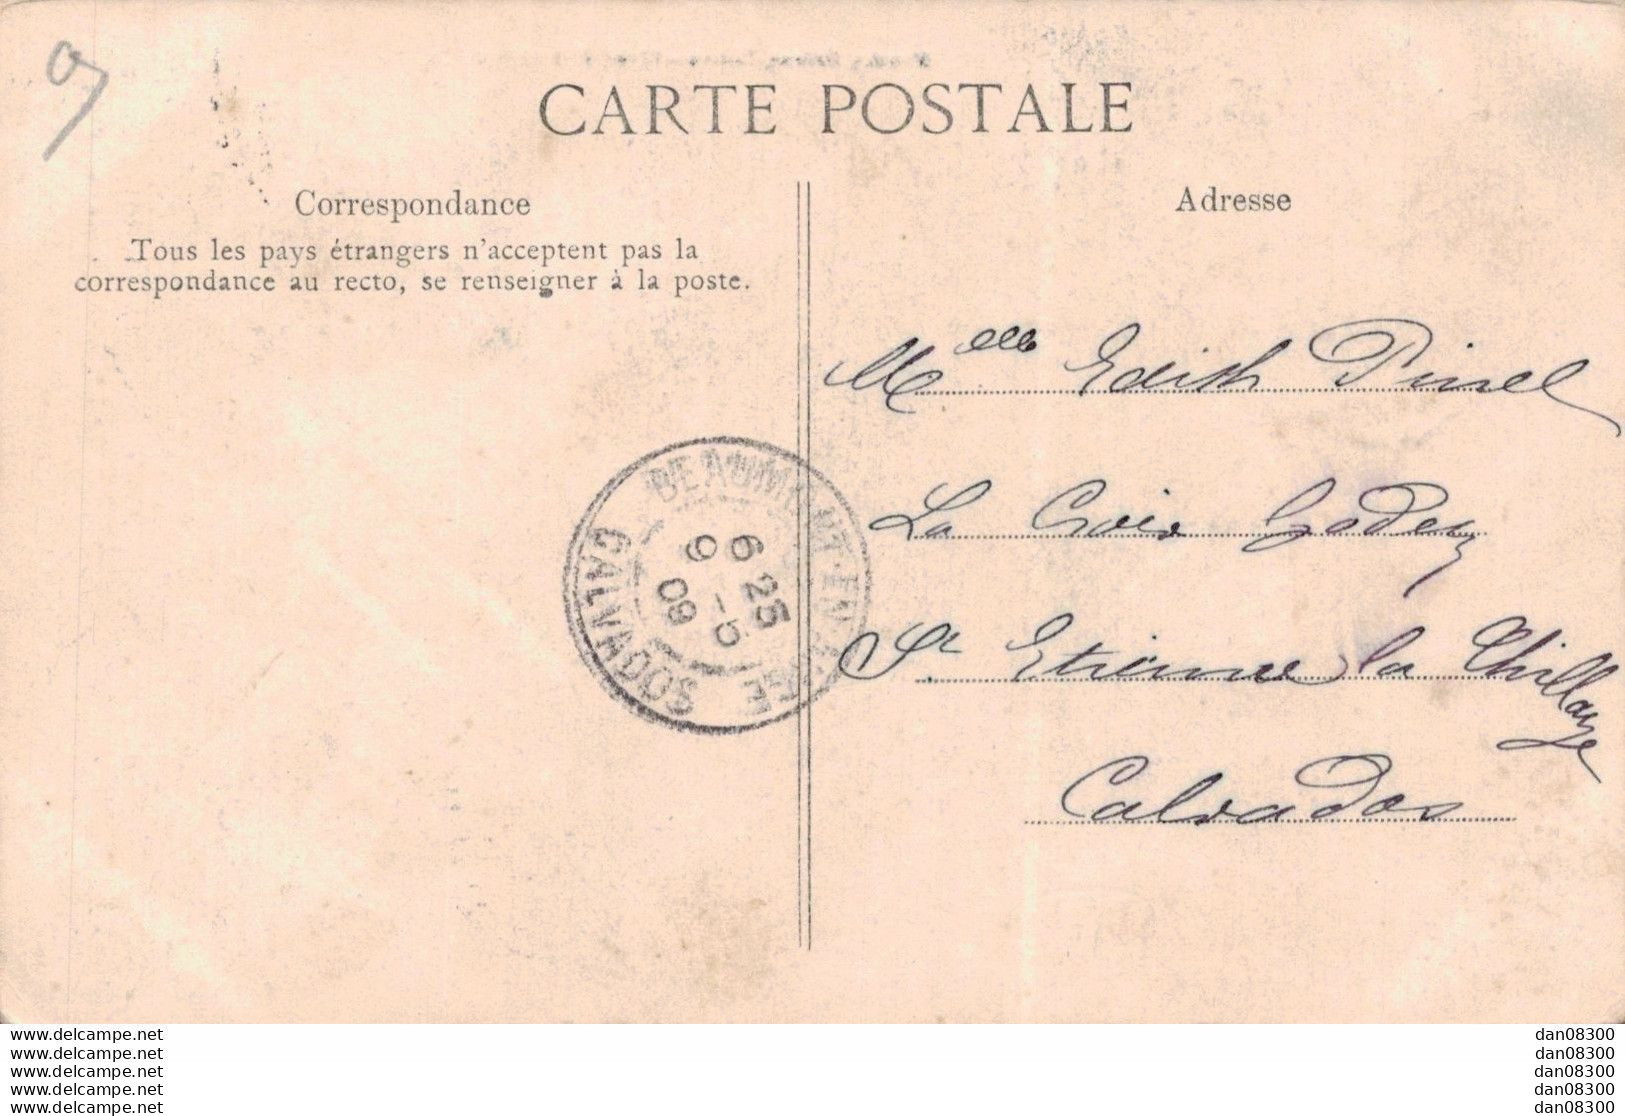 CARTE POSTALE
Correspondance
Tous les pays étrangers n'acceptent pas la
correspondance au recto, se renseigner à la poste.
Adresse
Melle Edith Pinel
La Croix Godey
St Etienne la Thillaye
Calvados
BEAUMONT-EN-AUGE
6 25
9 -5
09
CALVADOS
www.delcampe.net
www.delcampe.net
www.delcampe.net
www.delcampe.net
www.delcampe.net
dan08300
dan08300
dan08300
dan08300
dan08300